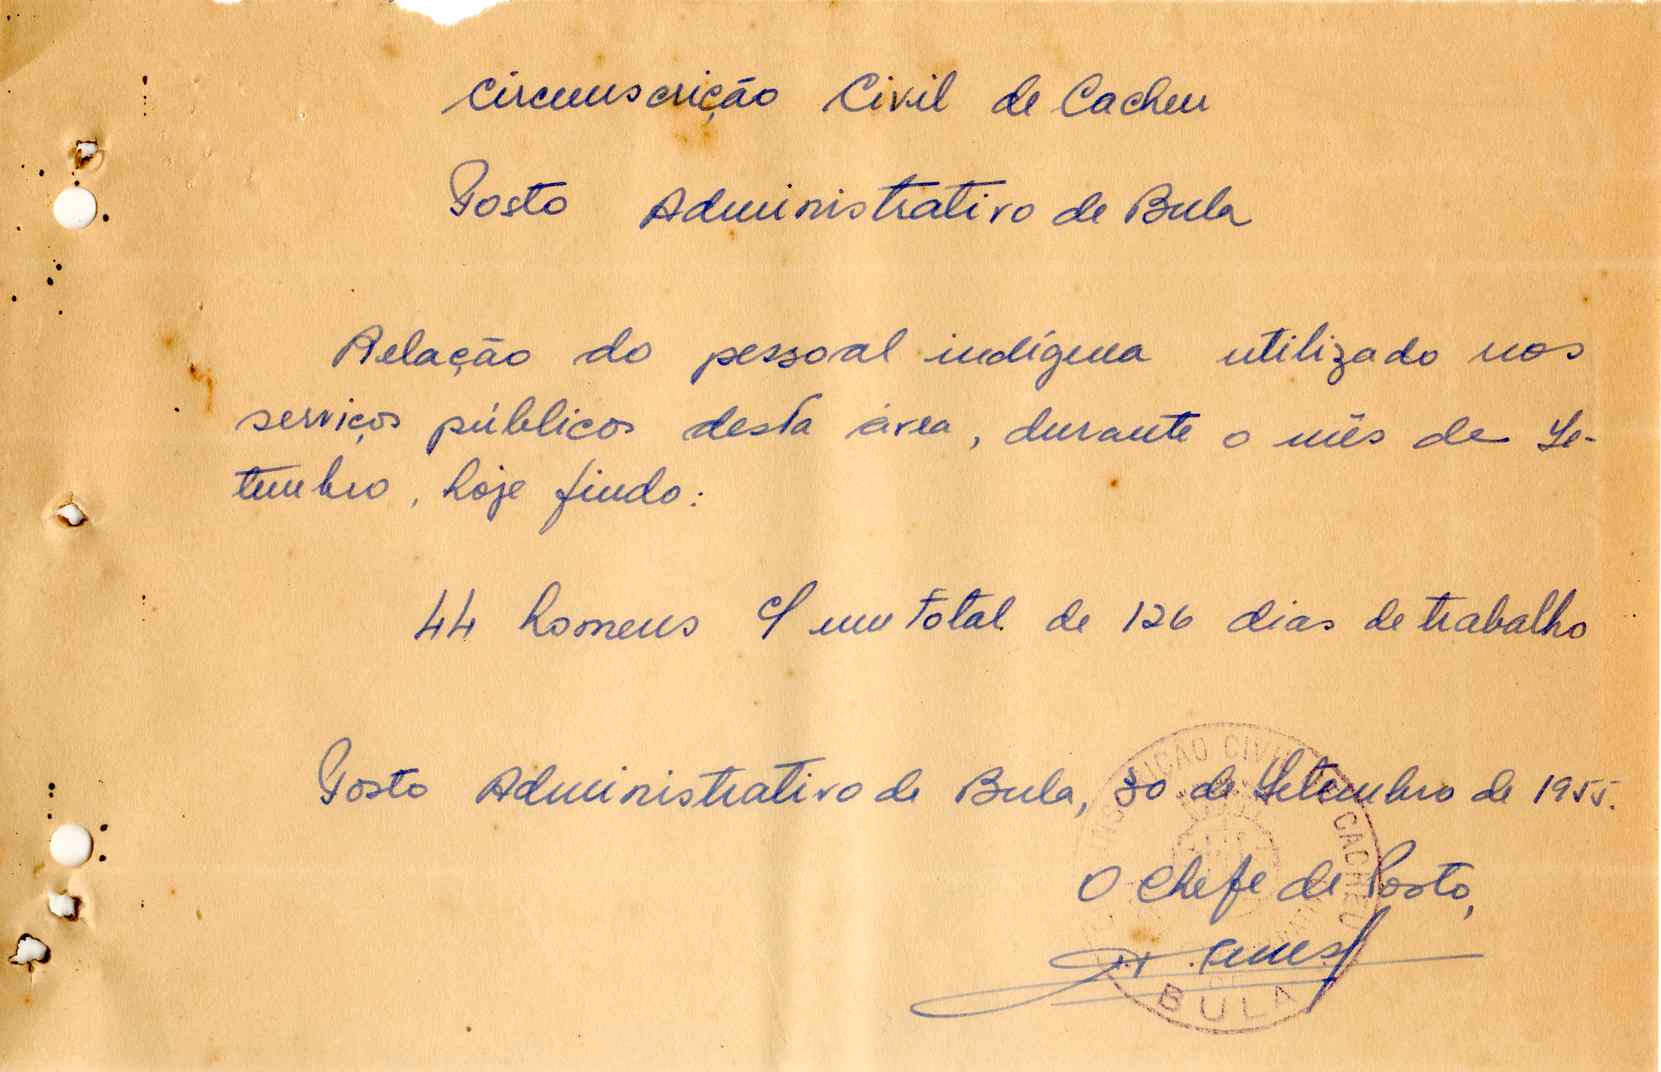 Circunscrição Civil de Cacheu
Posto Administrativo de Bula
Relação do pessoal indígena utilizado nos
serviços públicos desta área, durante o mês de Se-
tembro, hoje findo:
44 homens c/ um total de 126 dias de trabalho
Posto Administrativo de Bula, 30 de Setembro de 1955.
O Chefe de Posto,
CIVIL
CACHEU
BULA